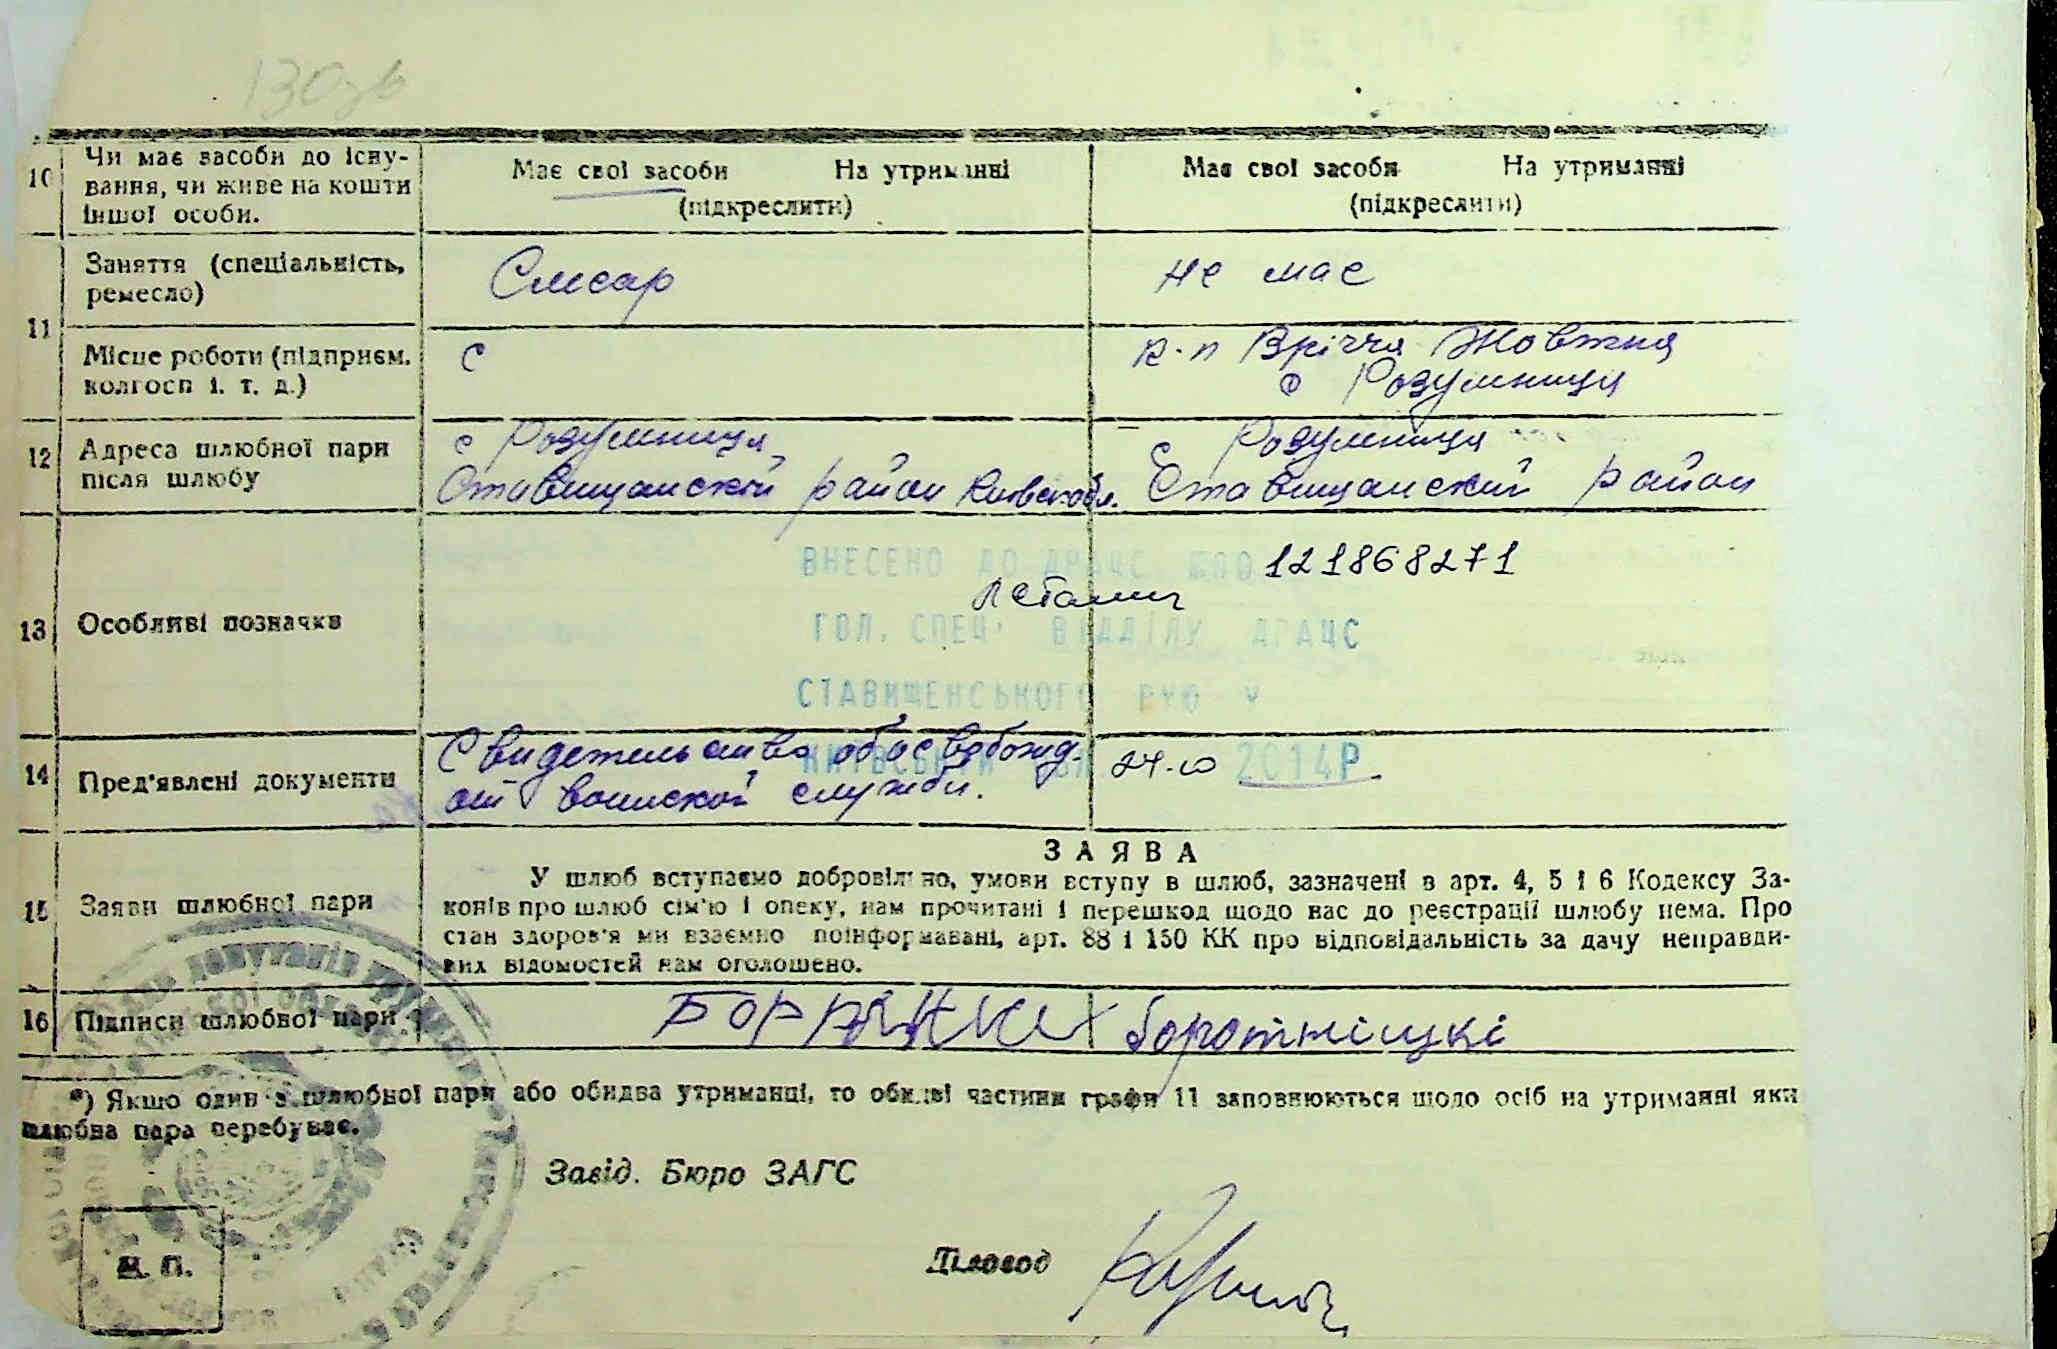 130зв
10 Чи має засоби до існу-
вання, чи живе на кошти
іншої особи.
Має свої засоби На утриманні
(підкреслити)
Має свої засоби На утриманні
(підкреслити)
11 Заняття (спеціальність,
ремесло)
Слюсар
не має
Місце роботи (підприєм.
колгосп і. т. д.)
с
к-п Вріччя Жовтня
с Розумниця
12 Адреса шлюбної пари
після шлюбу
с Розумниця
Ставищанский район Киевск обл.
с Розумниця
Ставищанский район
13 Особливі позначки
ВНЕСЕНО ДО ДРАЦС 121868271
ГОЛ. СПЕЦ. ВІДДІЛУ ДРАЦС
СТАВИЩЕНСЬКОГО РУЮ У
14 Пред'явлені документи
Свидетельство об освобожд.
от воинской службы.
КИЇВСЬКІЙ 24.10 2014Р.
15 Заяви шлюбної пари
ЗАЯВА
У шлюб вступаємо добровільно, умови вступу в шлюб, зазначені в арт. 4, 5 і 6 Кодексу За-
конів про шлюб сім'ю і опеку, нам прочитані і перешкод щодо нас до реєстрації шлюбу нема. Про
стан здоров'я ми взаємно поінформавані, арт. 88 і 150 КК про відповідальність за дачу неправди-
вих відомостей нам оголошено.
16 Підписи шлюбної пари
боротніцкі
*) Якщо один з шлюбної пари або обидва утриманці, то обидві частини графи 11 заповнюються щодо осіб на утриманні яких
шлюбна пара перебуває.
Завід. Бюро ЗАГС
Діловод
М. П.